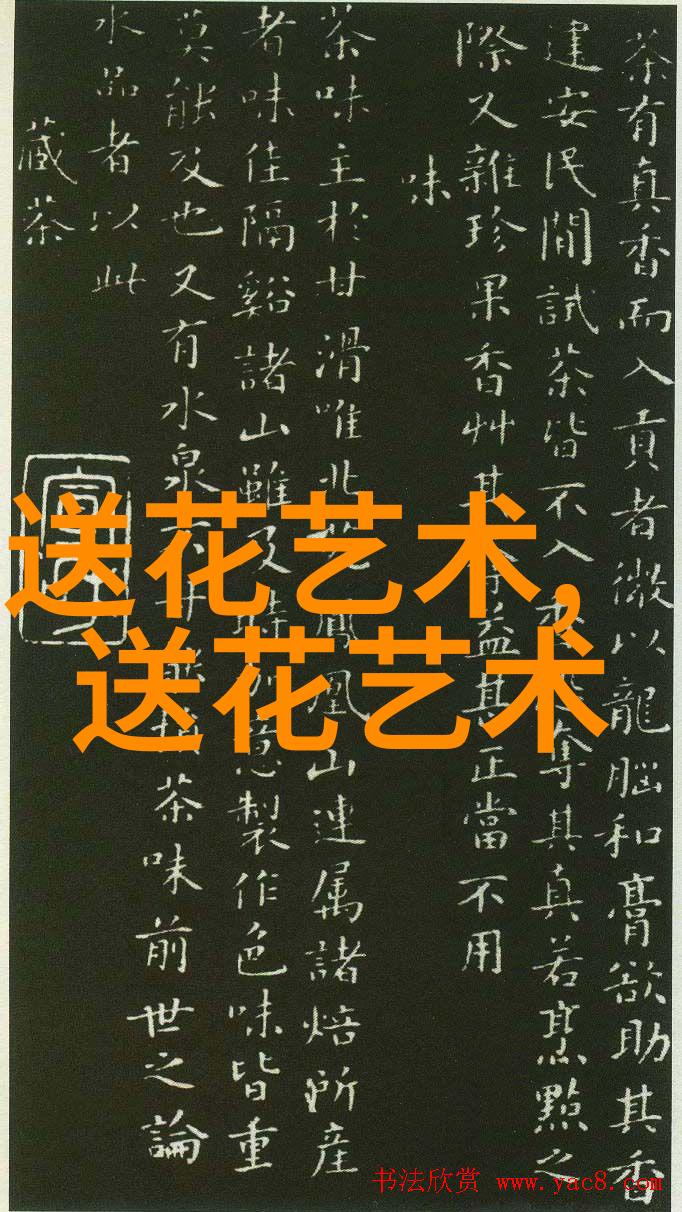 茶有真香而入貢者微以龍腦和膏欲助其香
建安民間試茶皆不入奪其真若烹點之
際又雜珍果香艸其益其正當不用
味
茶味主於甘滑唯北鳳凰山連属諸焙所産
者味佳隔谿諸山雖及時意製作色味皆重
莫能及也又有水泉茶味前世之論
水品者以此
藏茶
送花艺术,
送花艺术
书法欣赏 www.yac8.com